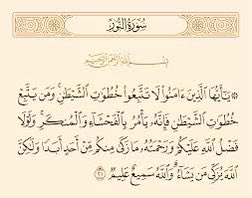 سُورَةُ النُّورِ
بِسْمِ اللَّهِ الرَّحْمَٰنِ الرَّحِيمِ
۞ يَٰٓأَيُّهَا ٱلَّذِينَ ءَامَنُوا۟ لَا تَتَّبِعُوا۟ خُطُوَٰتِ ٱلشَّيْطَٰنِ ۚ وَمَن يَتَّبِعْ
خُطُوَٰتِ ٱلشَّيْطَٰنِ فَإِنَّهُۥ يَأْمُرُ بِٱلْفَحْشَآءِ وَٱلْمُنكَرِ ۚ وَلَوْلَا
فَضْلُ ٱللَّهِ عَلَيْكُمْ وَرَحْمَتُهُۥ مَا زَكَىٰ مِنكُم مِّنْ أَحَدٍ أَبَدًا وَلَٰكِنَّ
ٱللَّهَ يُزَكِّى مَن يَشَآءُ ۗ وَٱللَّهُ سَمِيعٌ عَلِيمٌ ٢١